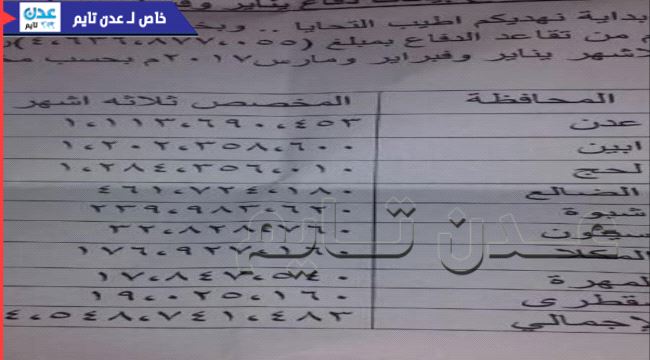 خاص لـ عدن تايم
عدن تايم
بداية نهديكم اطيب التحايا . .
م من تقاعد الدفاع بمبلغ (٤،٦٣٦،٨٧٧،٠٥٥)
لاشهر يناير وفبراير ومارس ٢٠١٧م بحسب
المحافظة المخصص ثلاثه اشهر
عدن ١،١١٣،٦٩٠،٤٥٣
ابين ١،٢٠٢،٣٥٨،٦٠٠
لحج ١،٢٨٤،٣٥٦،٠١٠
الضالع ٤٦١،٧٢٤،١٨٠
شبوة ٢٣٩،٩٨٣،٠٦٢٠
٣٢،٨٢٨،٠٧٦٠
المكلا ١٧٦،٩٢٧،١٦٠
لمهرة ١٧،٨٤٧،٥٧٤٠
سقطرى ١٩،٠٢٥،١٦٠
لإجمالي ٤،٥٤٨،٧٤١،٤٨٣
عدن تايم